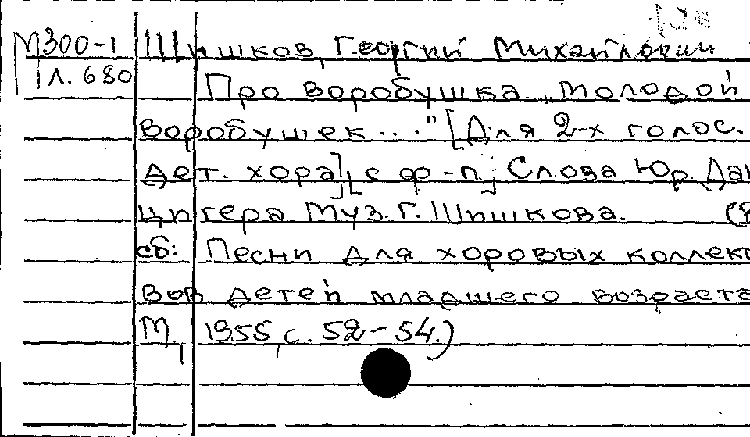 М300-1 Шишков, Георгий Михайлович
1л. 680
Про воробушка "Молодой
воробушек..." [Для 2-х голос.
дет. хора], [с ф-п]; Слова Юр. Дан
цигера. Муз. Г. Шишкова. (В
сб: Песни для хоровых коллек
вов детей младшего возраста
М, 1955, с. 52-54.)